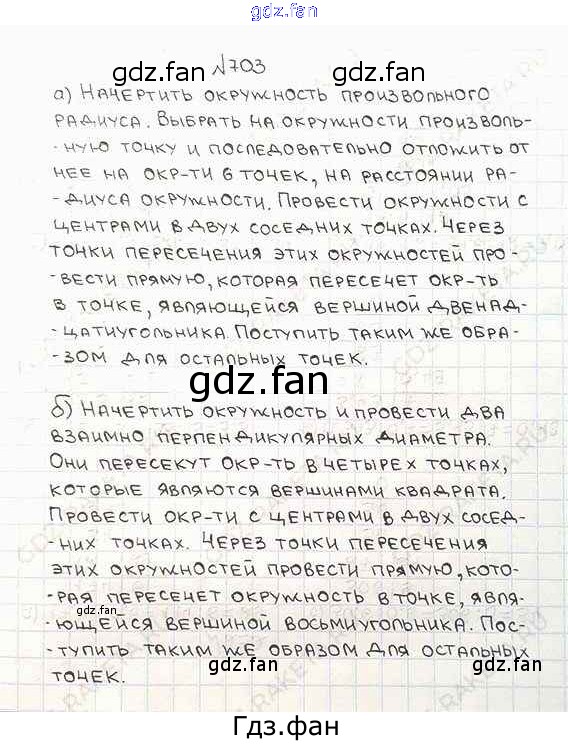 gdz.fan
№703
gdz.fan gdz.fan
а) Начертить окружность произвольного
радиуса. Выбрать на окружности произволь-
-ную точку и последовательно отложить от
нее на окр-ти 6 точек, на расстоянии ра-
-диуса окружности. Провести окружности с
центрами в двух соседних точках. Через
точки пересечения этих окружностей про-
-вести прямую, которая пересечет окр-ть
в точке, являющейся вершиной двенад-
-цатиугольника. Поступить таким же обра-
-зом для остальных точек.
gdz.fan
б) Начертить окружность и провести два
взаимно перпендикулярных диаметра.
Они пересекут окр-ть в четырех точках,
которые являются вершинами квадрата.
Провести окр-ти с центрами в двух сосед-
-них точках. Через точки пересечения
этих окружностей провести прямую, кото-
-рая пересечет окружность в точке, явля-
-ющейся вершиной восьмиугольника. Пос-
-тупить таким же образом для остальных
точек.
gdz.fan gdz.fan
Гдз.фан